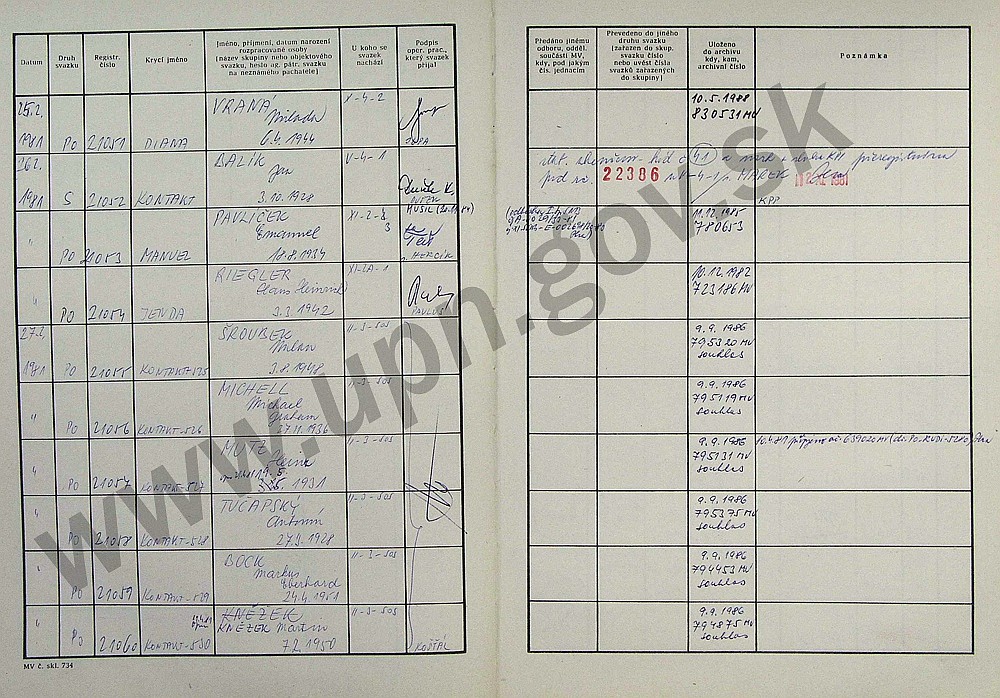 Datum
Druh svazku
Registr. číslo
Krycí jméno
Jméno, příjmení, datum narození
rozpracované osoby
(název skupiny nebo objektového
svazku, heslo ag. pátr. svazku
na neznámého pachatele)
U koho se
svazek
nachází
Podpis
oper. prac.,
který svazek
přijal
Předáno jinému
odboru, odděl.
součásti MV,
kdy, pod jakým
čís. jednacím
Převedeno do jiného
druhu svazku
(zařazen do skup.
svazku číslo
nebo uvést čísla
svazků zařazených
do skupiny)
Uloženo
do archivu
kdy, kam,
archivní číslo
Poznámka
25.2.
1981 Po 21051 DIANA
VRANÁ
Milada
6.4. 1944
X-4-2
10.5.1988
830531 MV
26.2.
1981 S 21052 KONTAKT
BALÍK
Jan
3.10.1928
V-4-1
22386
MAREK
KPP
" Po 21053 MANUEL
PAVLÍČEK
Emanuel
18.8.1934
XI-2-8
3
MUSIL (20.11.84)
HERCÍK
11.12.1985
780653
" Po 21054 JENDA
RIEGLER
Hans Heinrich
3.3.1942
XI-2A-1
PAVLUS
10.12.1982
723186 MV
27.2.
1981 Po 21055 KONTAKT-525
ŠROUBEK
Milan
3.8.1948
II-3-SOS
9.9.1986
795320 MV
souhlas
" Po 21056 KONTAKT-526
MICHELL
Michael
Graham
27.11.1936
II-3-SOS
9.9.1986
795119 MV
souhlas
" Po 21057 KONTAKT-527
MUTZ
Heinz
1931
II-3-SOS
9.9.1986
795131 MV
souhlas
" Po 21058 KONTAKT-528
TUČAPSKÝ
Antonín
27.9.1928
II-3-SOS
9.9.1986
795375 MV
souhlas
" Po 21059 KONTAKT-529
BOCK
Markus
Eberhard
24.4.1951
II-3-SOS
9.9.1986
794453 MV
souhlas
" Po 21060 KONTAKT-530
KNĚZEK
KNĚZEK Martin
7.2.1950
II-3-SOS
KOŠŤÁL
9.9.1986
794875 MV
souhlas
MV č. skl. 734
www.upn.gov.sk